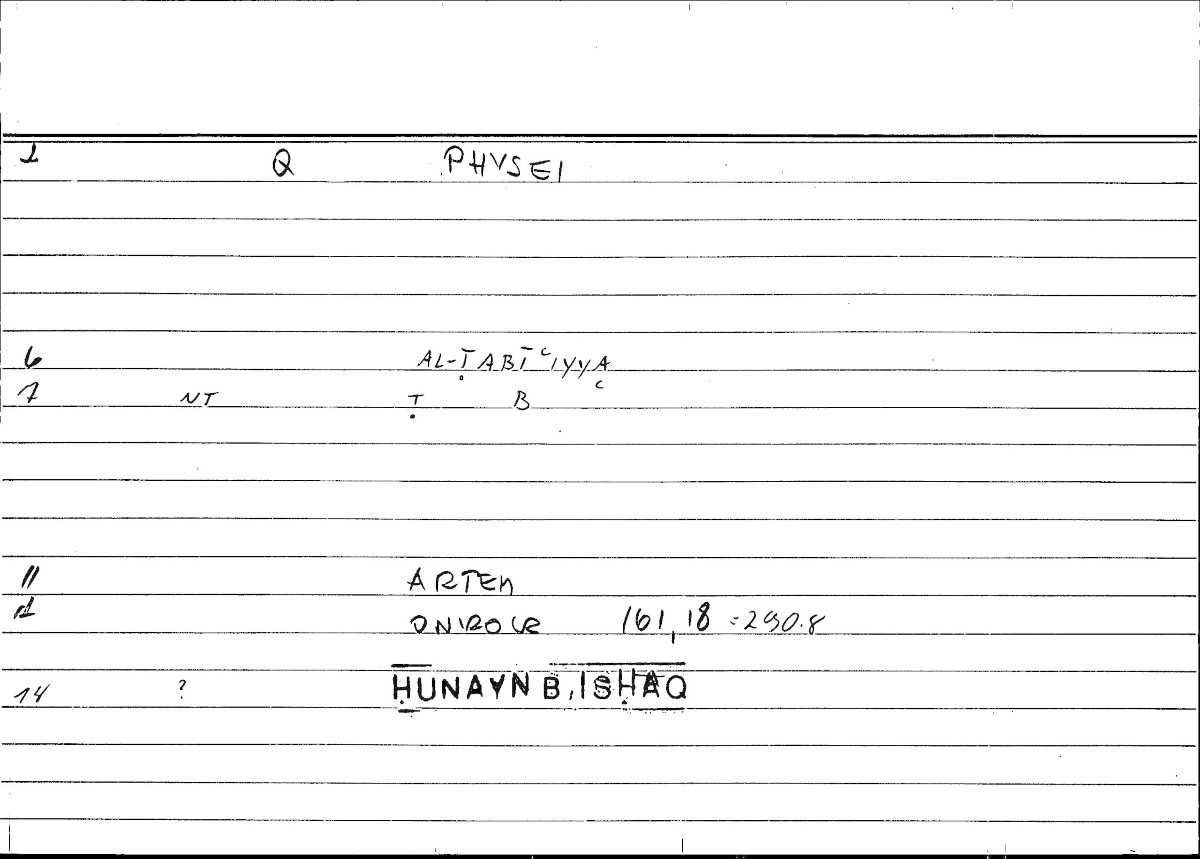 1 Q PHYSEI
6 AL-ṬABĪʿIYYA
7 NT Ṭ B
11 ARTEM
ONIROCR 161,18 = 290.8
14 ? ḤUNAYN B. ISḤĀQ